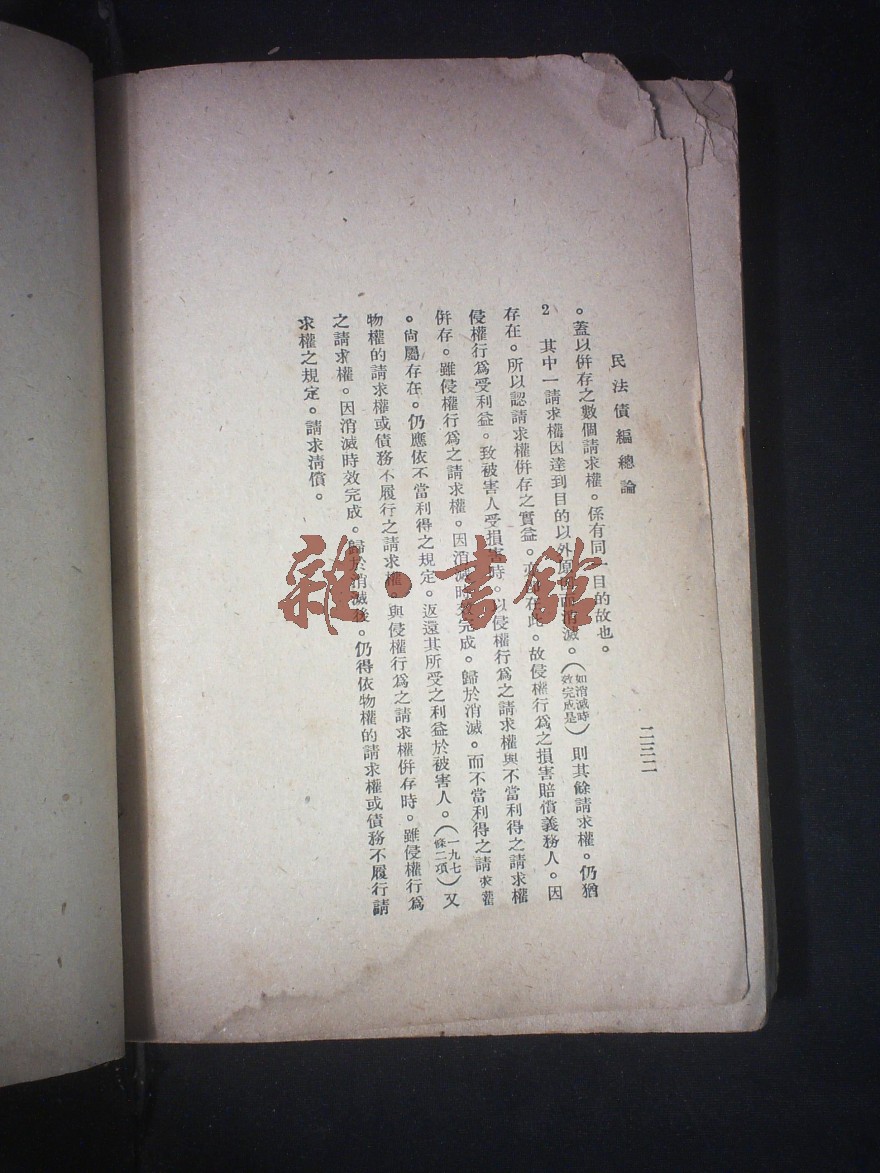 民法債編總論
二三二
。蓋以併存之數個請求權。係有同一目的故也。
2 其中一請求權因達到目的以外原因而消滅。(如消滅時效完成是)則其餘請求權。仍猶
存在。所以認請求權併存之實益。亦即在此。故侵權行為之損害賠償義務人。因
侵權行為受利益。致被害人受損害時。以侵權行為之請求權與不當利得之請求權
併存。雖侵權行為之請求權。因消滅時效完成。歸於消滅。而不當利得之請求權
。尚屬存在。仍應依不當利得之規定。返還其所受之利益於被害人。(一九七條二項)又
物權的請求權或債務不履行之請求權。與侵權行為之請求權併存時。雖侵權行為
之請求權。因消滅時效完成。歸於消滅後。仍得依物權的請求權或債務不履行請
求權之規定。請求清償。
雜·書館